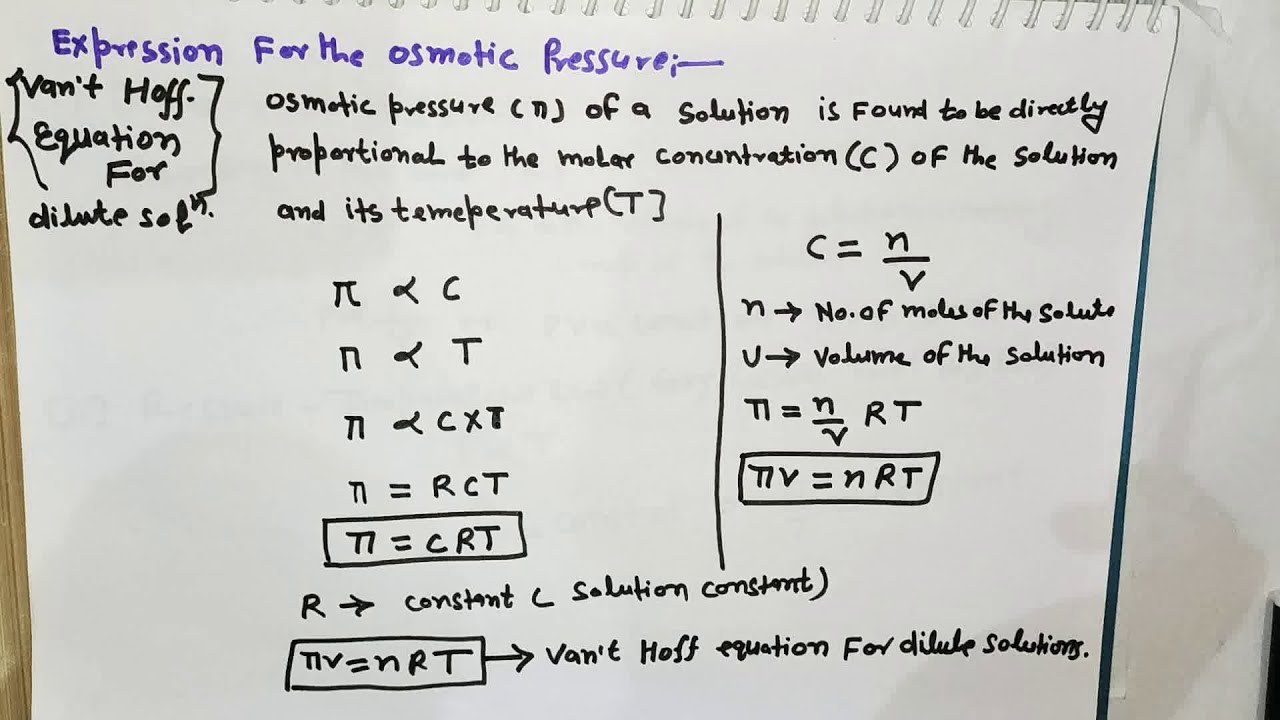 Expression For the Osmotic Pressure;—
Van't Hoff.
Equation
For
dilute solⁿ.
Osmotic pressure (π) of a solution is found to be directly
proportional to the molar concuntration (C) of the solution
and its temeperature (T]
π ∝ C
π ∝ T
π ∝ C×T
π = RCT
π = CRT
C = n/V
n → No. of moles of the solute
V → Volume of the solution
π = n/V RT
πV = nRT
R → constant ( solution constant)
πV = nRT → Van't Hoff equation For dilute solutions.